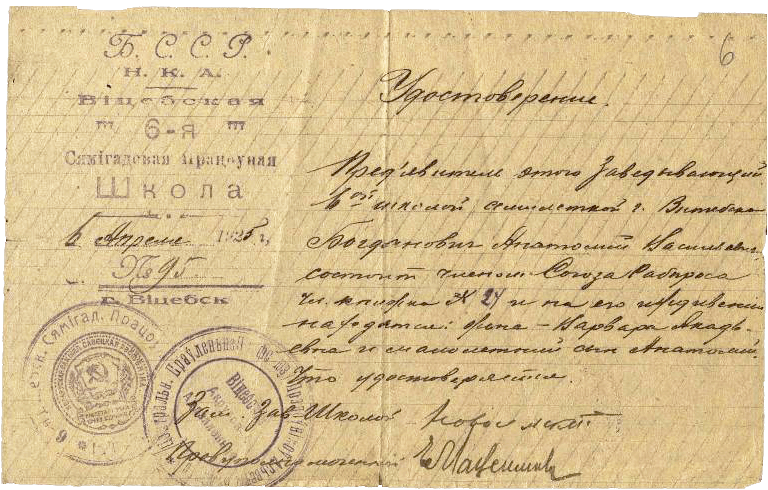 Б. С. С. Р.
Н. К. А.
Віцебская
6-я
Сямігадовая Працоуная
Школа
6 Апреля 1925 г,
№ 95
г. Віцебск
6
Удостоверение.
Пред'явитель этого Заведывающий
6ой школой семилеткой г. Витебска
Богданович Анатолий Васильевич
состоит членом Союза Рабпроса
чл. книжка № 24 и на его иждивении
находятся: жена - Варвара Аркадь-
евна и малолетний сын Анатолий.
Что удостоверяется.
Зам. Зав. Школой
Сямігад. Працо
Віцеб